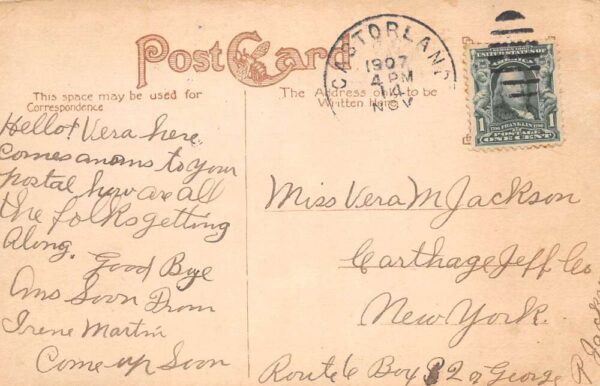 Post Card
This space may be used for
Correspondence
The Address only to be
Written Here
CASTORLAND
1907
4 PM
14
NOV
SERIES 1902
UNITED STATES OF
AMERICA
1 FRANKLIN 1
POSTAGE
ONE CENT
Hello! Vera here
comes an ans to your
postal how are all
the folks getting
along.
Good Bye
Ans Soon From
Irene Martin
Come up Soon
Miss Vera M Jackson
Carthage Jeff Co
New York.
Route 6 Box 32 % George
R Jackson